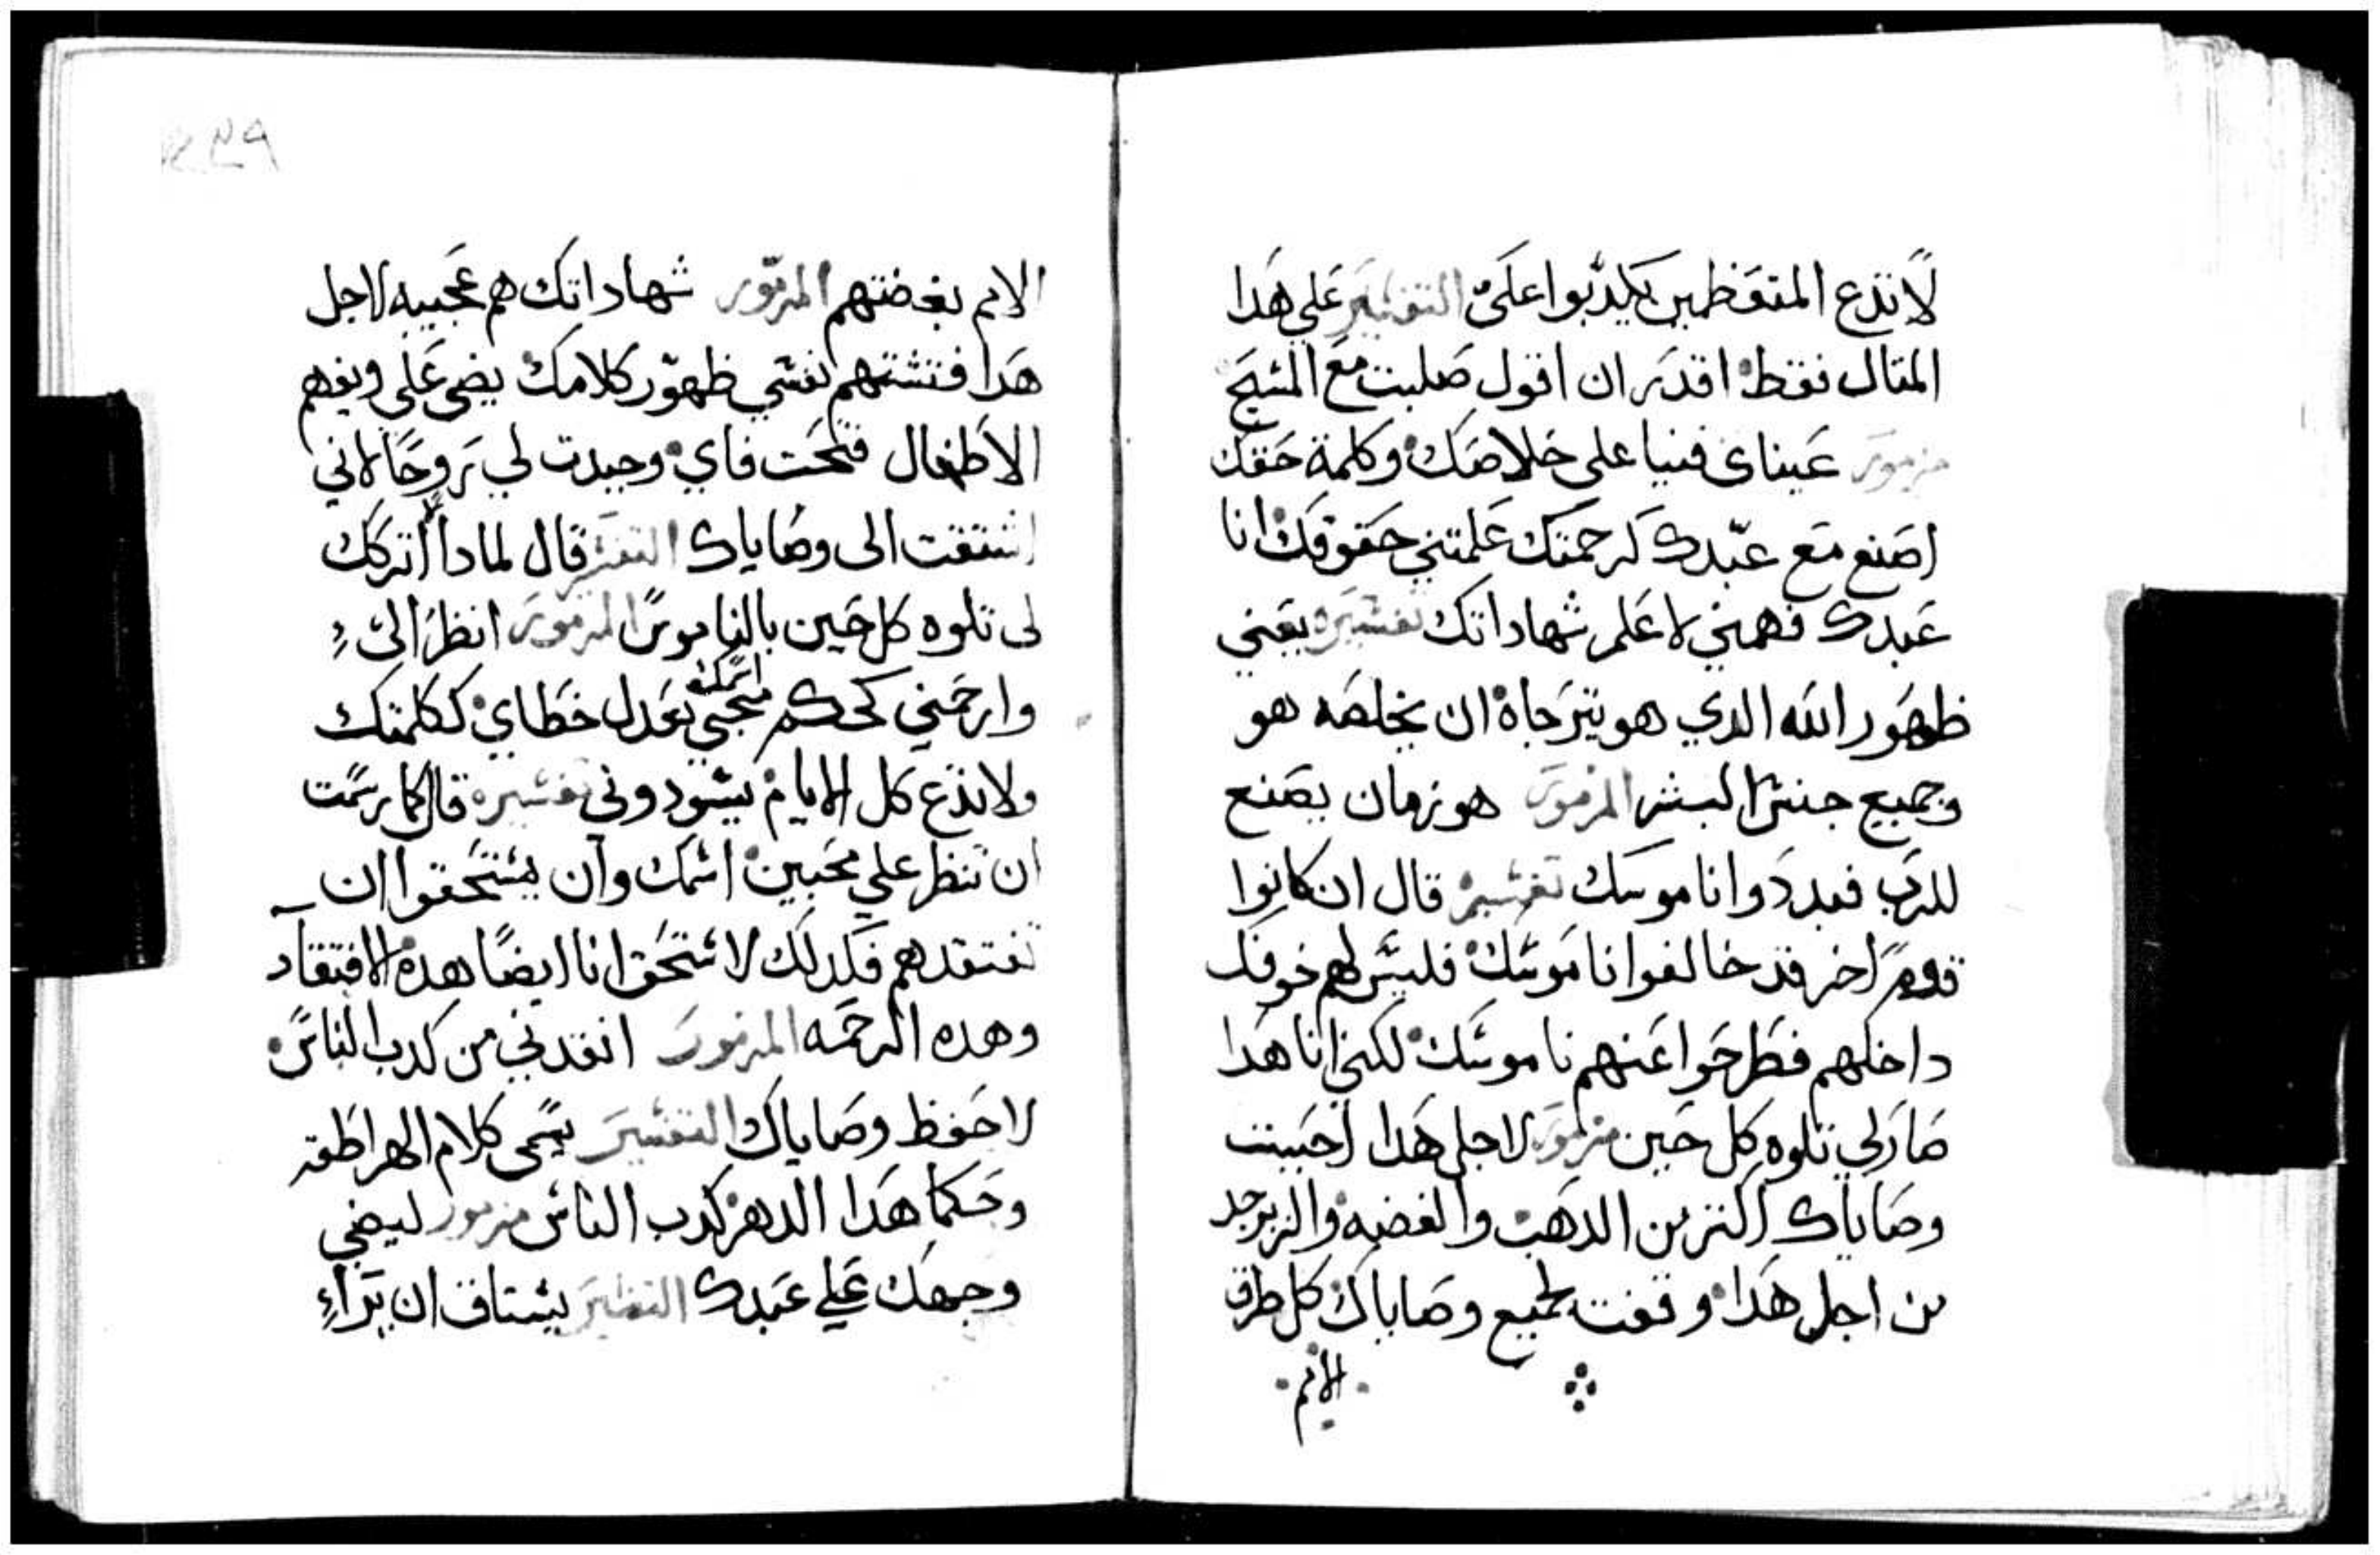 لا تدع المتعظمين يكدبوا علىّ التفسير على هدا
المثال فقط اقدر ان اقول صلبت مع المسيح
مزمور عيناى فنيا على خلاصك وكلمة حقك
اصنع مع عبدك كرحمتك علمتني حقوقك انا
عبدك فهمني لاعلم شهاداتك تفسيره يعني
ظهور الله الدي هو يترجاه ان يخلصه هو
وجميع جنس البشر المزمور هو زمان يصنع
للرب فبددوا ناموسك تفسيره قال ان كانوا
قوم اخر قد خالفوا ناموسك فليس لهم خوفك
داخلهم فطرحوا عنهم ناموسك لكني انا هدا
صار لي تلاوه كل حين مزمور لاجل هدا احببت
وصاياك اكتر من الدهب والفضه والزبرجد
من اجل هدا وقفت لجميع وصاياك كل طرق
الاثم
الاثم بغضتهم المزمور شهاداتك هم عجيبه لاجل
هدا فتشتهم نفسي ظهور كلامك يضى علي ويفهم
الاطفال فتحت فاي وجبدت لي روحًا لاني
اشتقت الى وصاياك التفسير قال لمادا اتركك
لى تلوه كل حين بالناموس المزمور انظر الىّ
وارحمني كحكم محبي اسمك عدل خطاي ككلمتك
ولا تدع كل الاثام يسودوني تفسيره قال كما رسمت
ان تنظر علي محبين اسمك وان يستحقوا ان
تفتقدهم فكدلك لاستحق انا ايضًا هده الافتقاد
وهده الرحمه المزمور انقدني من كدب الناس
لاحفظ وصاياك التفسير يسمى كلام الهراطقه
وحكما هدا الدهر كدب الناس مزمور ليضي
وجهك علي عبدك التفسير يشتاق ان يراء